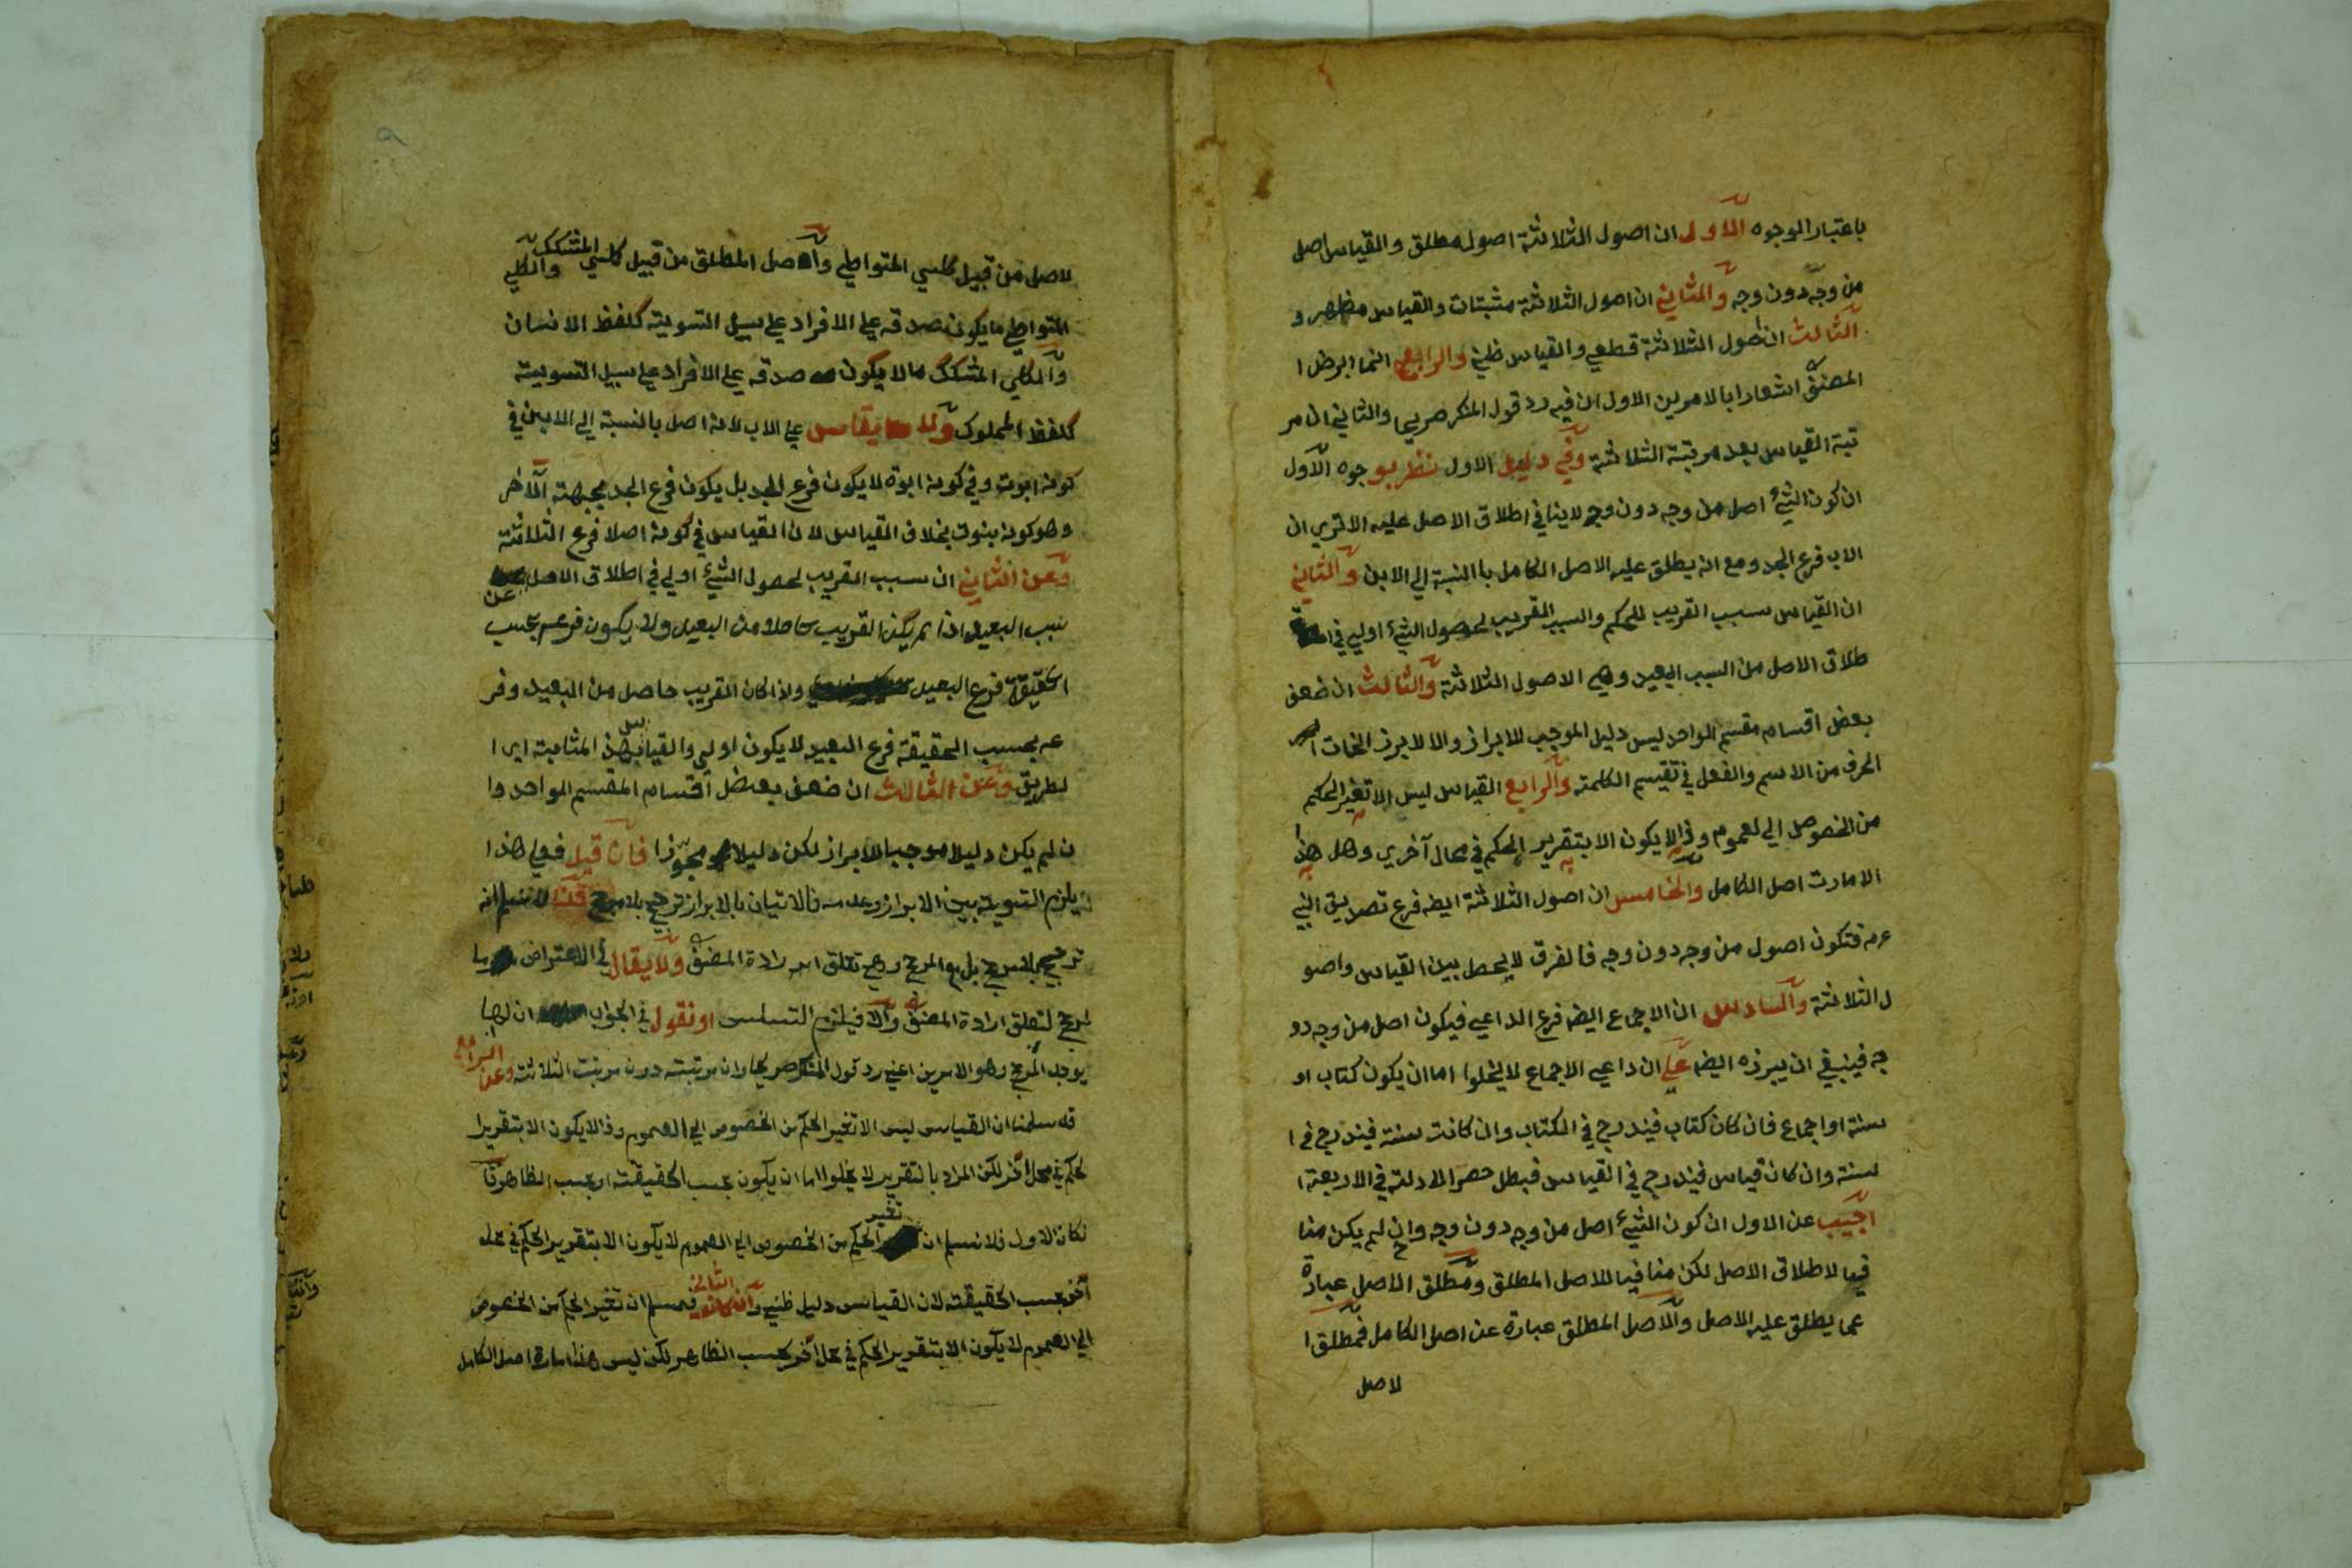 باعتبار الوجوه الاول ان اصول الثلاثة اصول مطلق والقياس اصل
من وجه دون وجه والثاني ان اصول الثلاثة مثبتات والقياس مظهر و
الثالث ان اصول الثلاثة قطعي والقياس ظني والرابع انما ابرض ا
المصنف اشعارا بالامرين الاول ان فيه رد قول المنكر صريحا والثاني ان مر
تبة القياس بعد مرتبة الثلاثة وفي دليل الاول نظر بوجوه الاول
ان كون الشيء اصل من وجه دون وجه لاينافي اطلاق الاصل عليه الاتري ان
الاب فرع الجد ومع انه يطلق عليه الاصل الكامل باالنسبة الي الابن والثاني
ان القياس سبب القريب للحكم والسبب القريب لحصول الشيء اولي في ا
طلاق الاصل من السبب البعيد وهي الاصول الثلاثة والثالث ان ضعف
بعض اقسام مقسم الواحد ليس دليل الموجب للابراز والا لابرز
الحرف من الاسم والفعل في تقسيم الكلمة والرابع القياس ليس الا تغير الحكم
من الخصوص الي لعموم وذا لايكون الا بتقرير الحكم في محال آخري وهل هذا
الامارت اصل الكامل والخامس ان اصول الثلاثة ايضه فرع تصديق النبي
عرم فتكون اصول من وجه دون وجه فالفرق لايحصل بين القياس واصو
ل الثلاثة والسادس ان الاجماع ايضه فرع الداعي فيكون اصل من وجه دو
جه فينبغي ان يبرزه ايضا علي ان داعي الاجماع لايخلوا اما ان يكون كتاب او
سنة او اجماع فان كان كتاب فيندرج في الكتاب وان كانت سنة فيندرج في ا
لسنة وان كان قياس فيندرج في القياس فبطل حصر الادلة في الاربعة ا
اجيب عن الاول ان كون الشيء اصل من وجه دون وجه وان لم يكن منا
فيا لاطلاق الاصل لكن منافيا للاصل المطلق ومطلق الاصل عبارة
عما يطلق عليه الاصل والاصل المطلق عبارة عن اصل الكامل فمطلق ا
لاصل
لاصل من قبيل كلي المتواطي والاصل المطلق من قبيل كلي المشكك والكلي
المتواطي مايكون صدقه علي الافراد علي سبيل التسوية كلفظ الانسان
والكلي المشكك مالايكون صدقه علي الافراد علي سبيل التسوية
كلفظ المملوك ولا يقاس علي الاب لانه اصل بالنسبة الي الابن في
كونه ابوت وفي كونه ابوة لايكون فرع الجد بل يكون فرع الجد بجهة الآخر
وهو كونه بنوت بخلاف القياس لان القياس في كونه اصلا فرع الثلاثة
وعن الثاني ان سبب القريب لحصول الشيء اولي في اطلاق الاصل عن
سبب البعيد اذا لم يكن القريب حاصلا من البعيد ولا يكون فرعه بحسب
الحقيقة فرع البعيد واذا كان القريب حاصل من البعيد وفر
عه بحسب الحقيقة فرع البعيد لايكون اولي والقياس بهذا المثابة
لطريق وعن الثالث ان ضعف بعض اقسام المقسم الواحد وا
ن لم يكن دليلا موجبا للابراز لكن دليلا مجوزا فان قيل فعلي هذا
يلزم التسوية بين الابراز وعدمه فالاتيان بالابراز ترجيح بلامرجح قلنا لانسلم انه
ترجيح بلامرجح بل مع المرجح وهي تعلق ارادة المصنف ولايقال في الاعتراض
لمرجح لتعلق ارادة المصنف والا فيلزم التسلسل او نقول في الجواب ان لها
يوجد المرجح وهو الامرين اعني رد قول المنكر صريحا وان مرتبته دون مرتبت الثلاثة وعن الرابع
قد سلمنا ان القياس ليس الا تغير الحكم من الخصوص الي العموم وذا لايكون الا بتقرير ا
لحكم في محل آخر لكن المراد بالتقرير لا يخلوا اما ان يكون بحسب الحقيقة او بحسب الظاهر فا
نكان الاول فلا نسلم ان تغير الحكم من الخصوص الي العموم لايكون الا بتقرير الحكم في محل
آخر بحسب الحقيقة لان القياس دليل ظني وان كان الثاني فمسلم ان تغير الحكم من الخصوص
الي العموم لايكون الا بتقرير الحكم في محل آخر بحسب الظاهر لكن ليس هذا امارة اصل الكامل